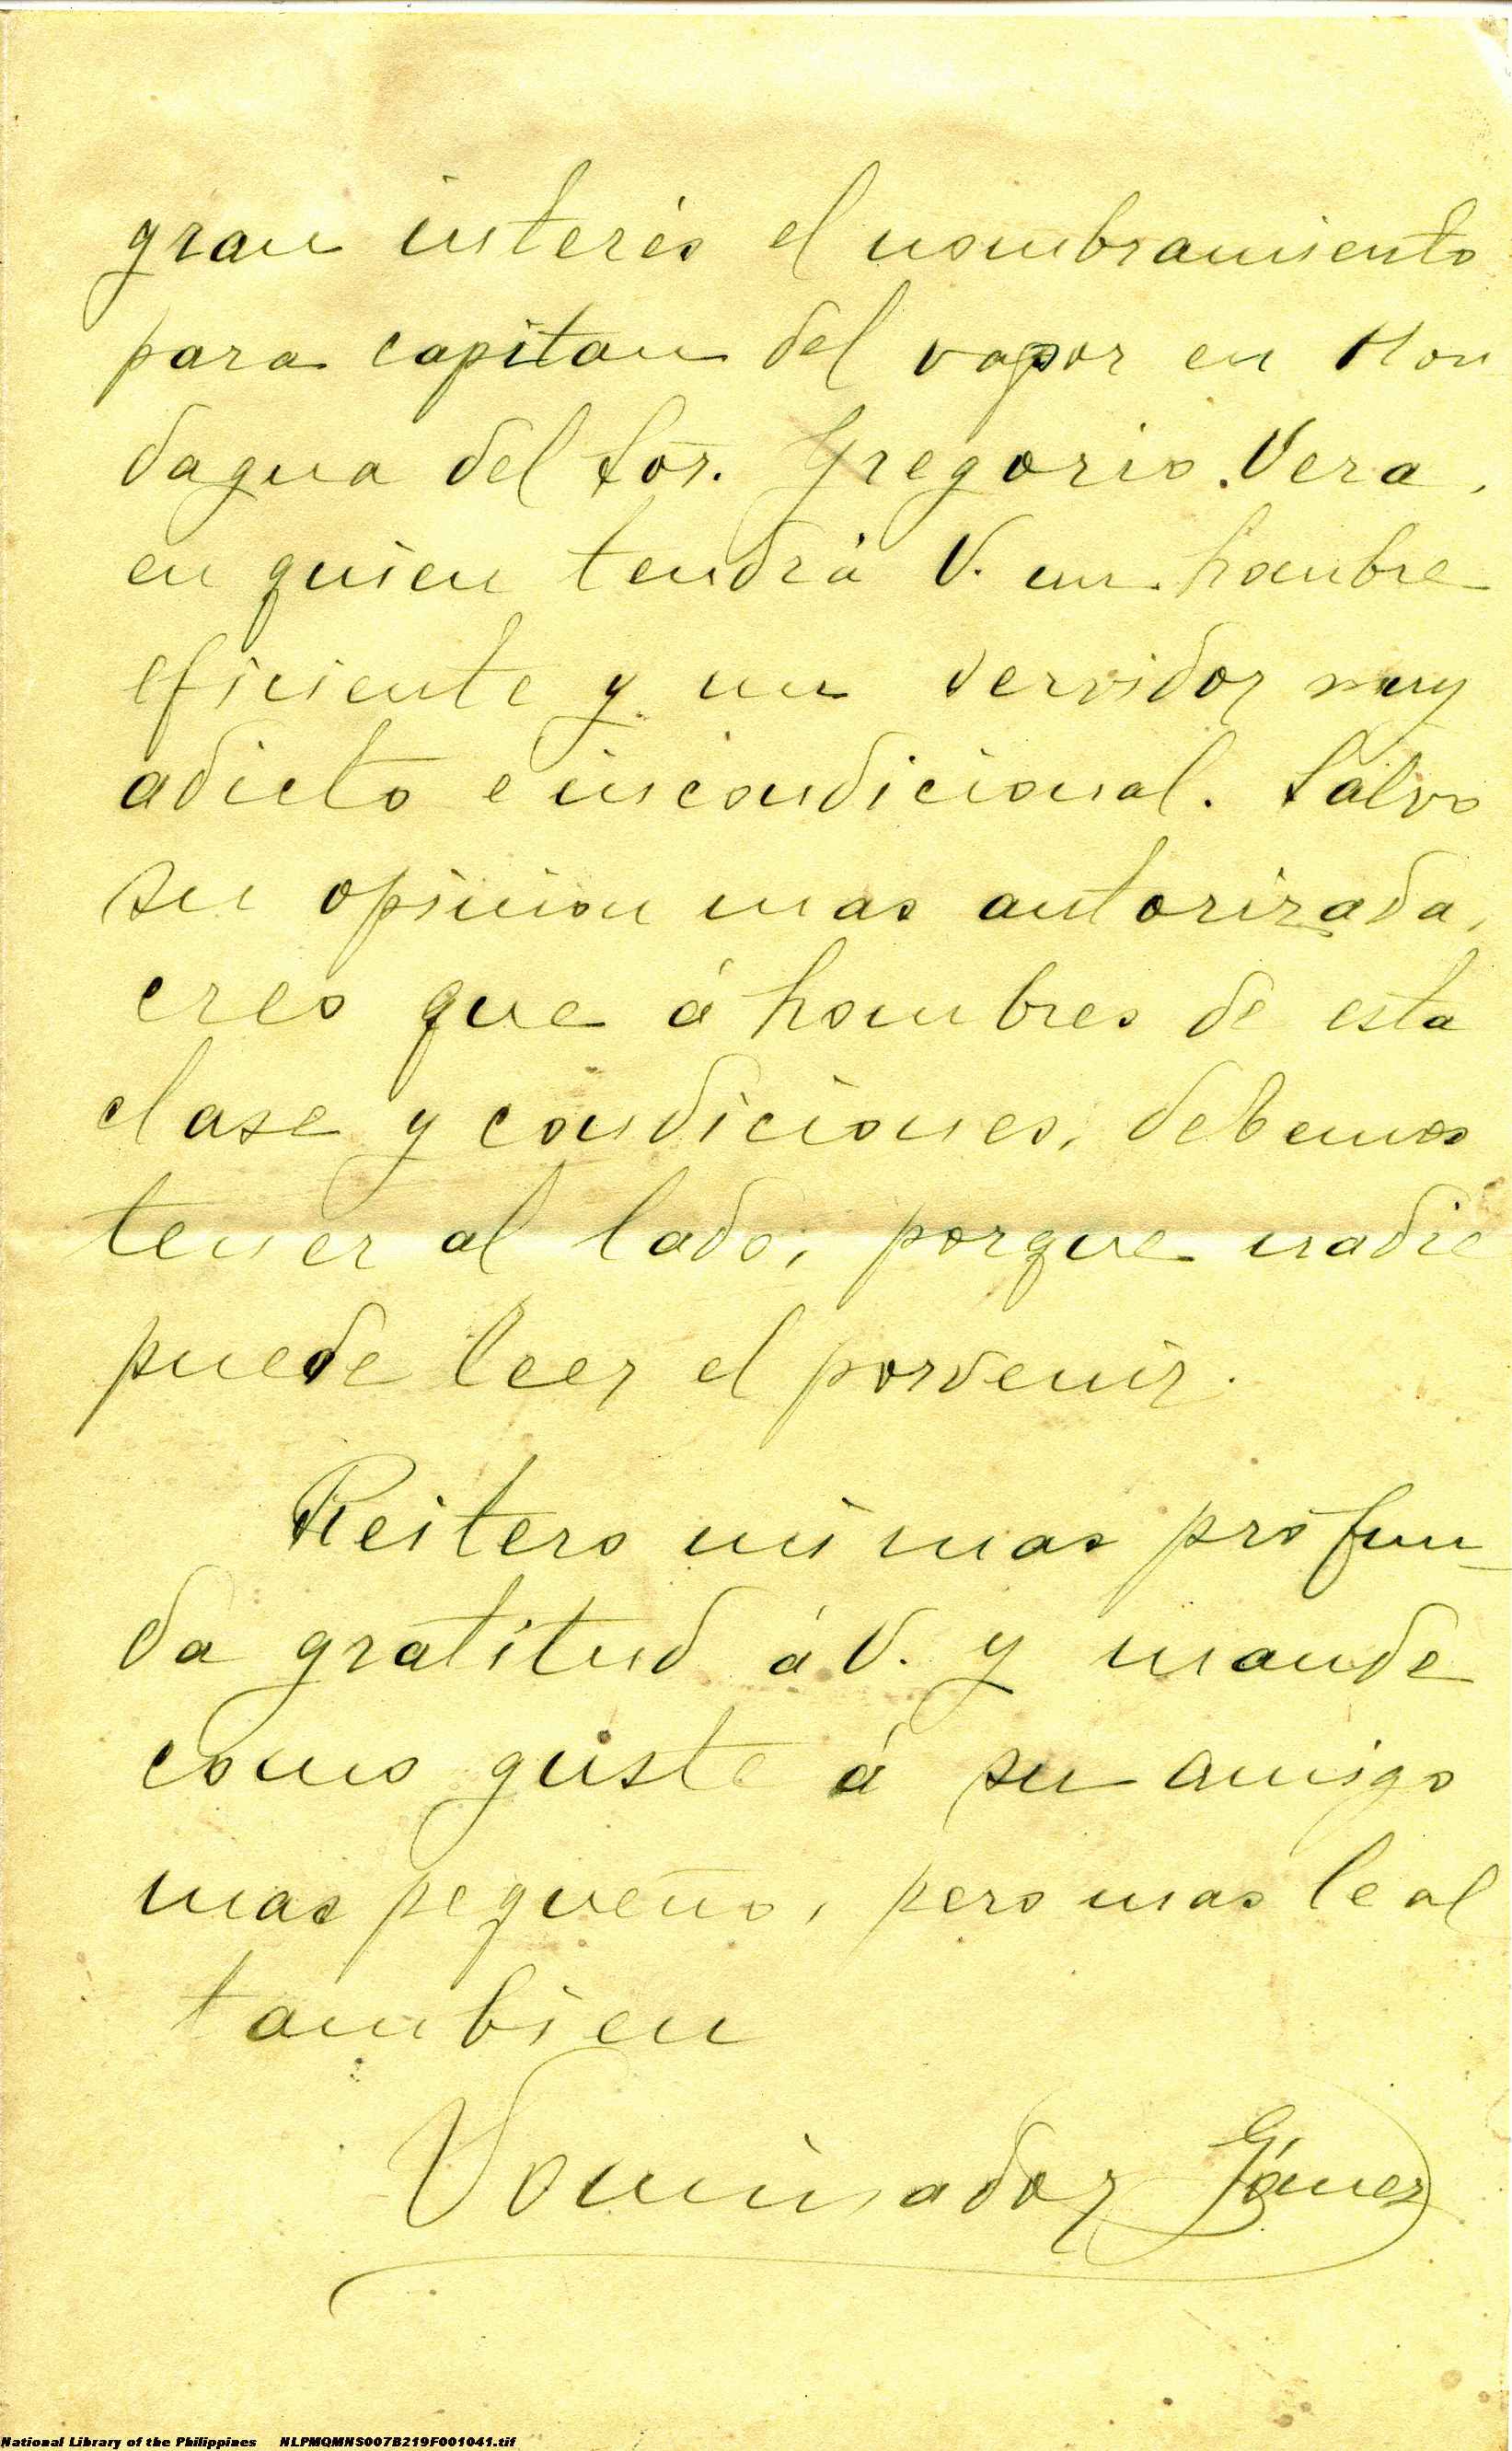 gran interés el nombramiento
para capitan del vapor en Hon
dagua del Sor. Gregorio Vera,
en quien tendrá V. un hombre
eficiente y un servidor muy
adicto e incondicional. Salvo
su opinion mas autorizada,
creo que á hombres de esta
clase y condiciones, debemos
tener al lado, porque nadie
puede leer el porvenir.
Reitero mi mas profun-
da gratitud á V. y mande
como guste á su amigo
mas pequeño, pero mas leal
tambien
Dominador Gómez
National Library of the Philippines NLPMQMNS007B219F001041.tif